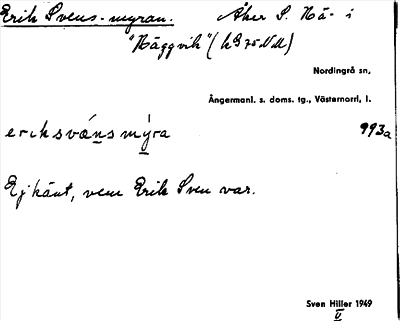 Erik Svens-myran. Åker S. Nä- i
"Häggvik" (kB 75 NM)
Nordingrå sn,
Ångermanl. s. doms. tg., Västernorrl. l.
eriksvä́nsmýra 993a
Ej känt, vem Erik Sven var.
Sven Hiller 1949
V